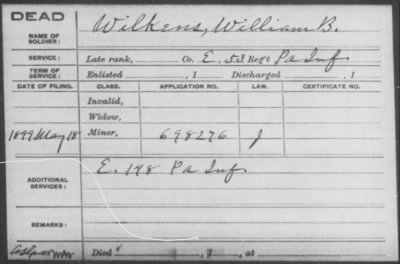 DEAD
NAME OF SOLDIER: Wilkens, William B.
SERVICE: Late rank, Co. E. 53 Reg't Pa Inf.
TERM OF SERVICE: Enlisted , 1 Discharged , 1
DATE OF FILING. CLASS. APPLICATION NO. LAW. CERTIFICATE NO.
Invalid,
Widow,
1899 May 18 Minor, 698276 J
ADDITIONAL SERVICES: E. 148 Pa Inf.
REMARKS:
Died , 1 , at